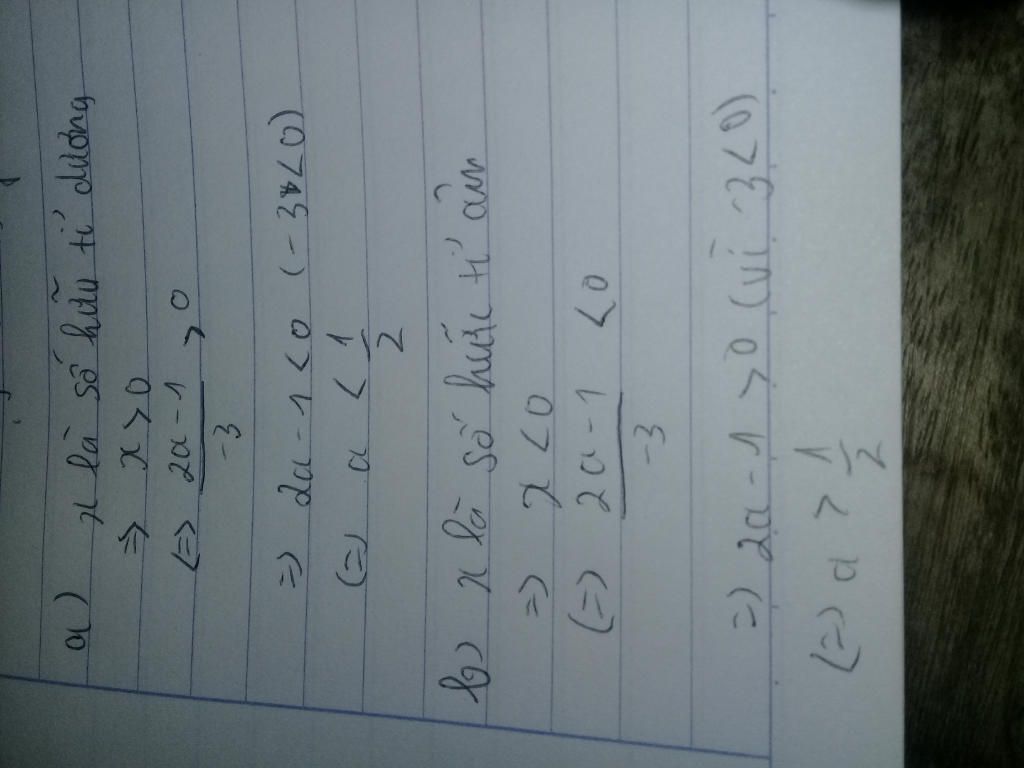 a) x là số hữu tỉ dương
=> x > 0
<=> 2a - 1 / -3 > 0
=> 2a - 1 < 0 (-3 < 0)
<=> a < 1/2
b) x là số hữu tỉ âm
=> x < 0
<=> 2a - 1 / -3 < 0
=> 2a - 1 > 0 (vì -3 < 0)
<=> a > 1/2